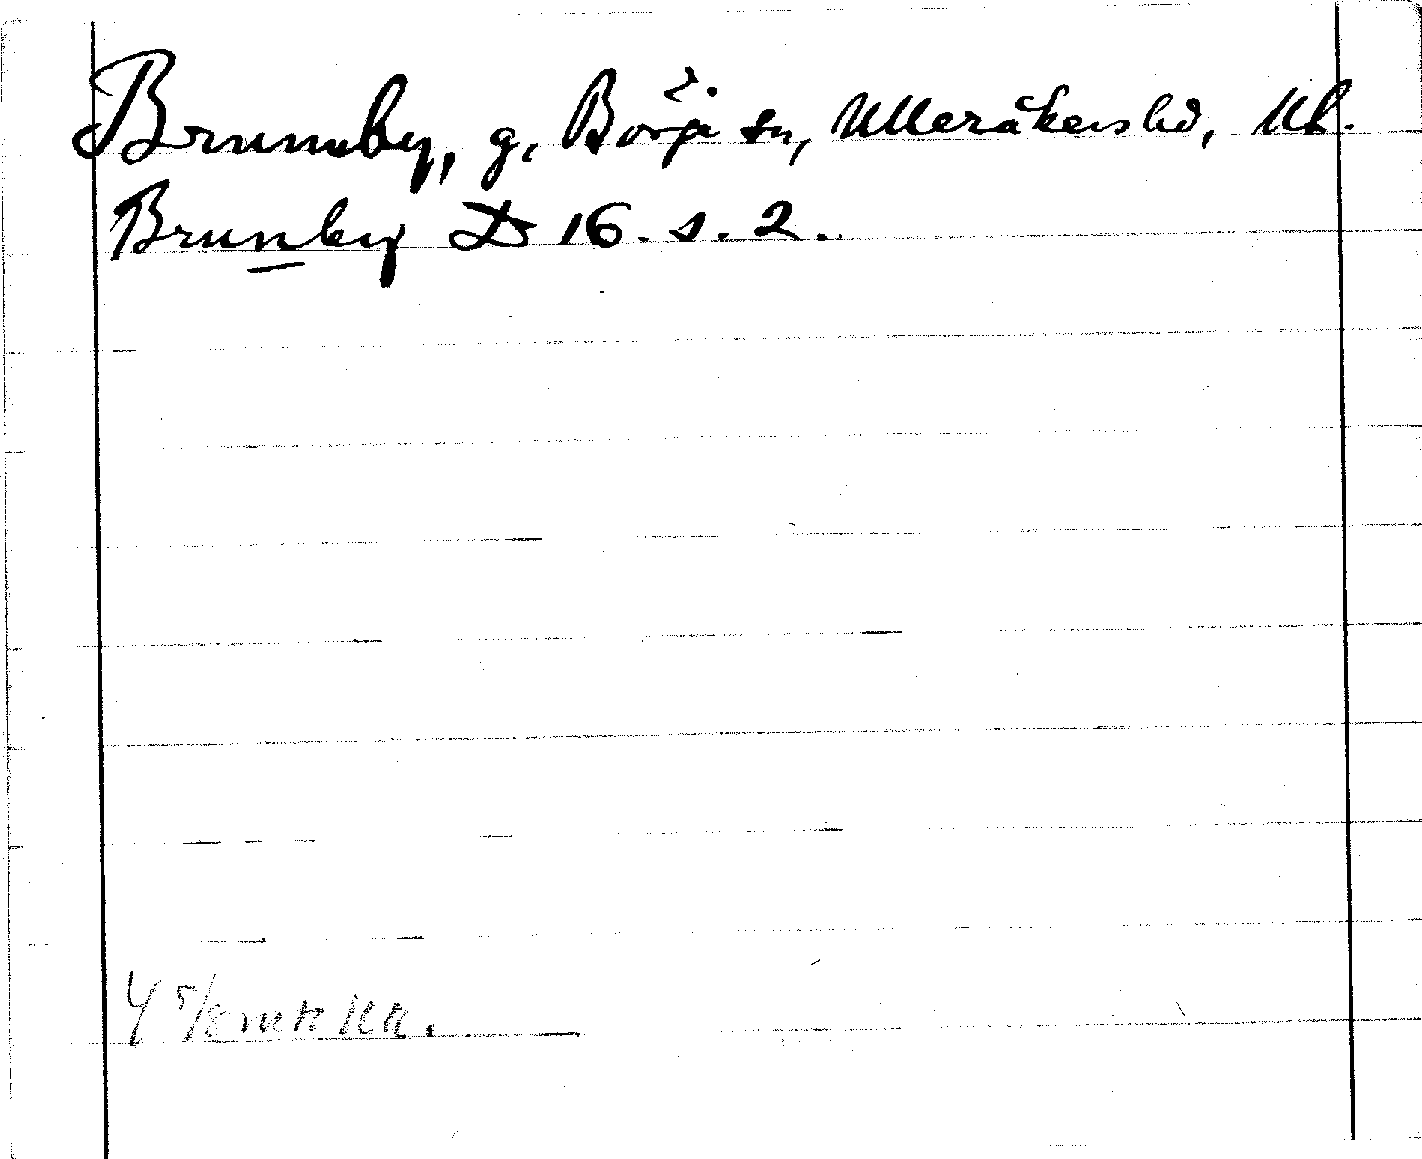 Brunnby, g, Börje sn, Ulleråkers hd, Upl.
Brunby D 16. s. 2.
4 5/8 mtl